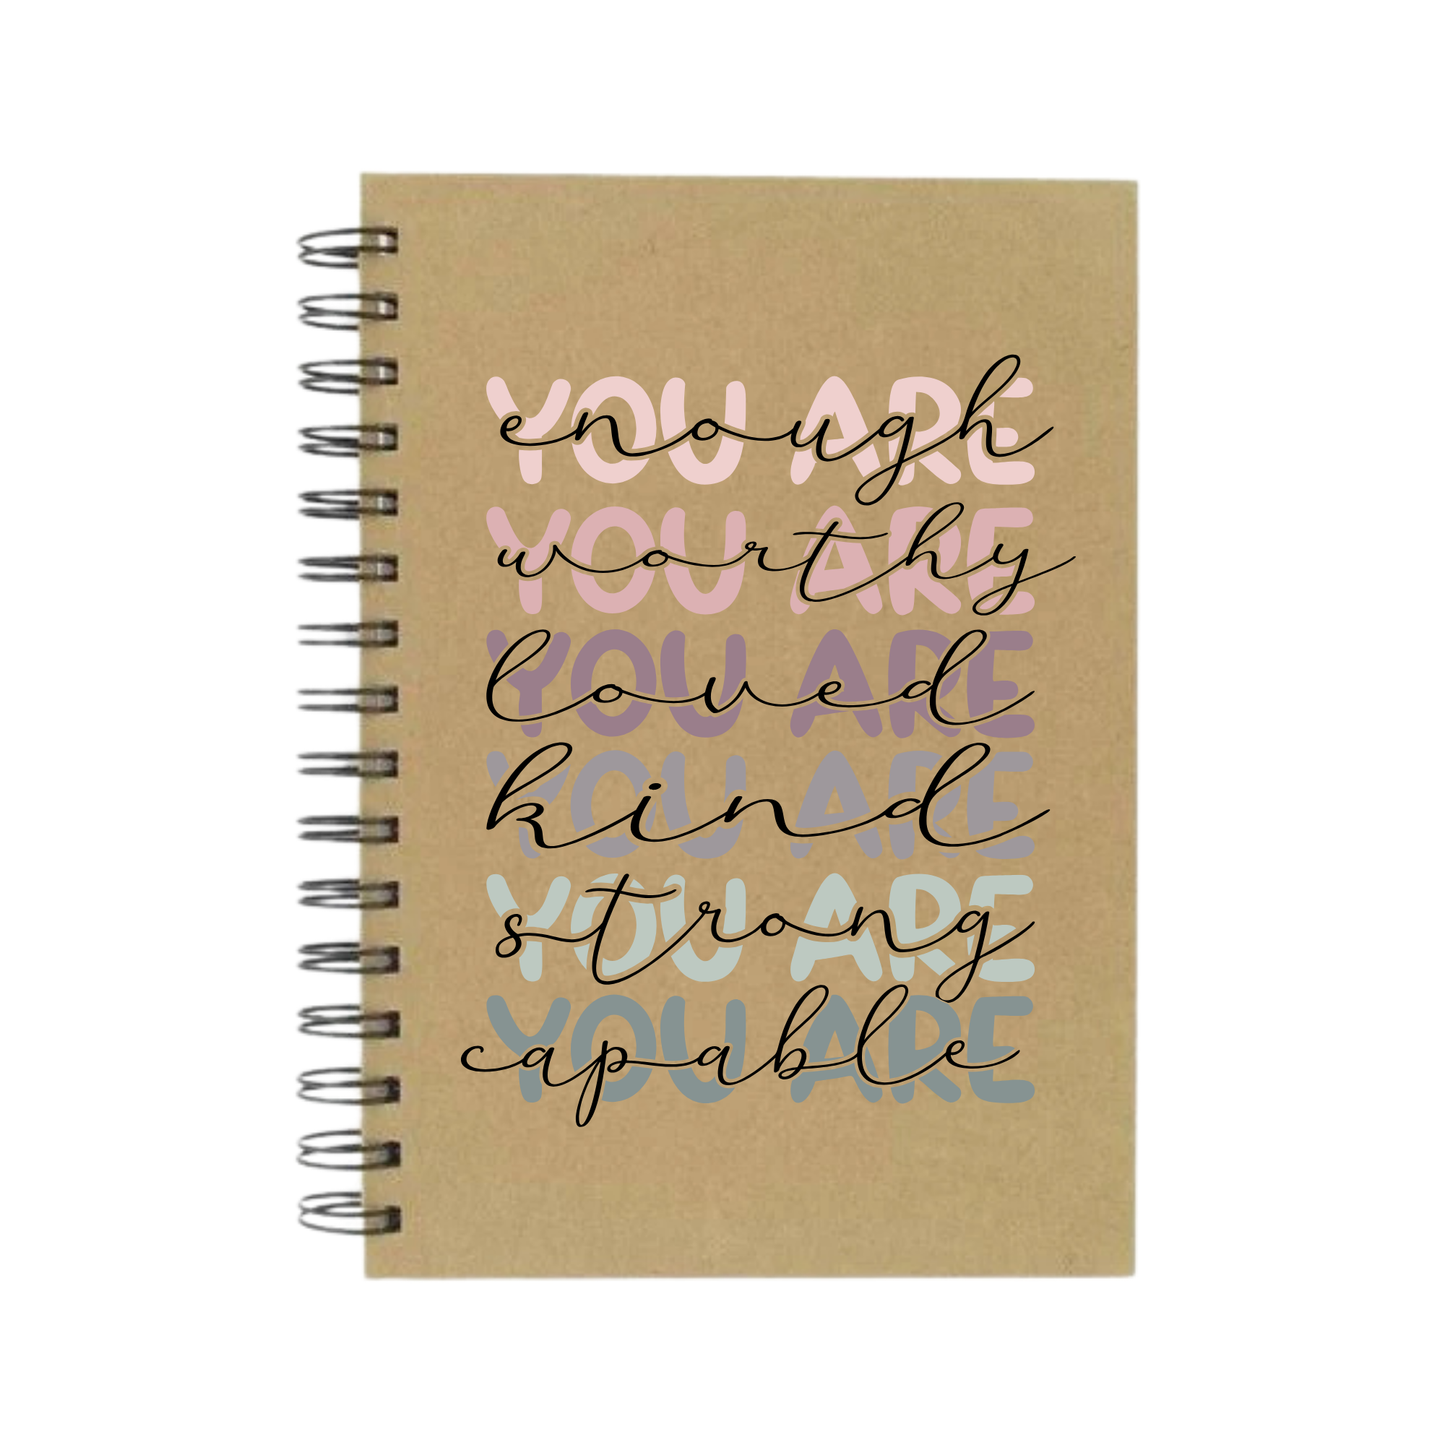 YOU ARE
enough
YOU ARE
worthy
YOU ARE
loved
YOU ARE
kind
YOU ARE
strong
YOU ARE
capable